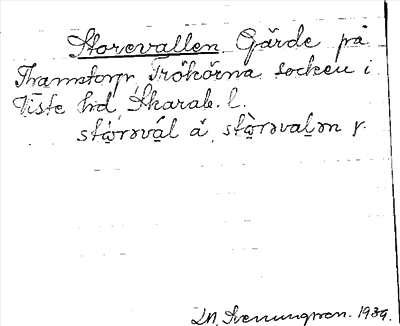 Storevallen Gärde på
Thamstorp, Trökörna socken i
Viste hd, Skarab. l.
stò̤rəvál á, stò̤rəvalən r.
Svenungsson. 1939.